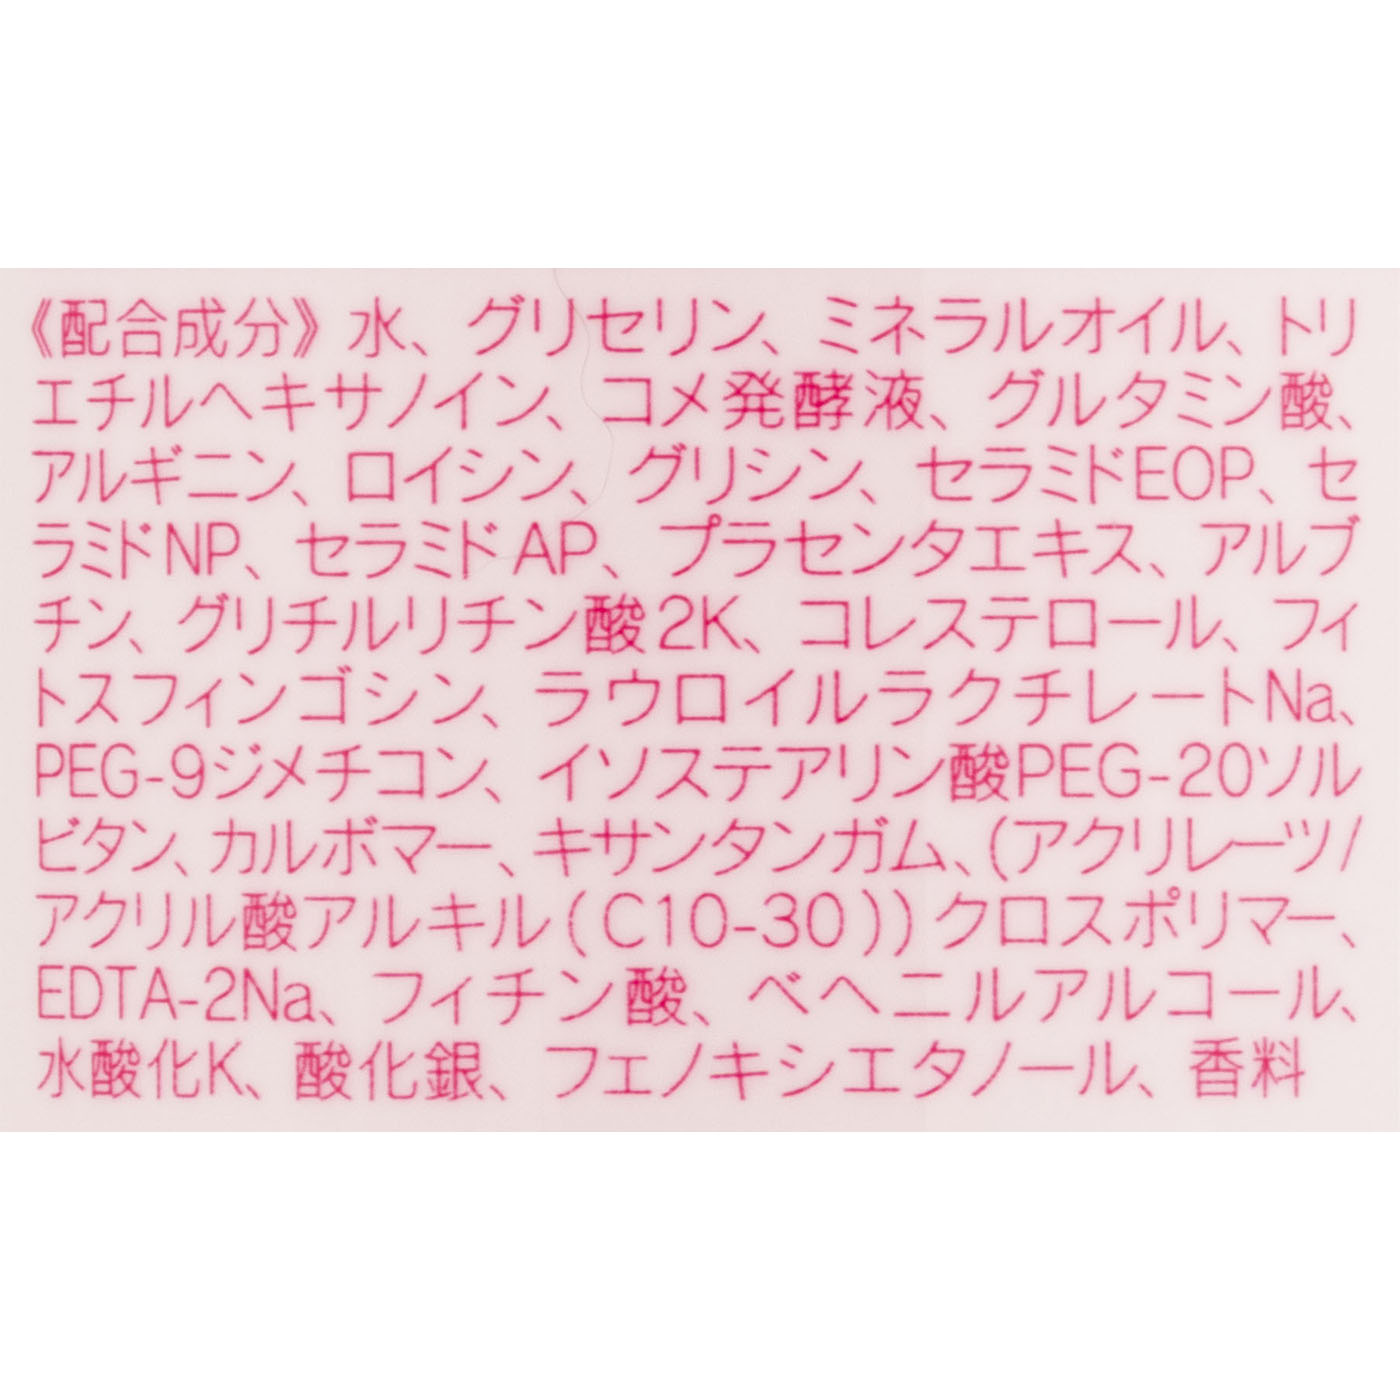 《配合成分》水、グリセリン、ミネラルオイル、トリ
エチルヘキサノイン、コメ発酵液、グルタミン酸、
アルギニン、ロイシン、グリシン、セラミドEOP、セ
ラミドNP、セラミドAP、プラセンタエキス、アルブ
チン、グリチルリチン酸2K、コレステロール、フィ
トスフィンゴシン、ラウロイルラクチレートNa、
PEG-9ジメチコン、イソステアリン酸PEG-20ソル
ビタン、カルボマー、キサンタンガム、(アクリレーツ/
アクリル酸アルキル(C10-30))クロスポリマー、
EDTA-2Na、フィチン酸、ベヘニルアルコール、
水酸化K、酸化銀、フェノキシエタノール、香料